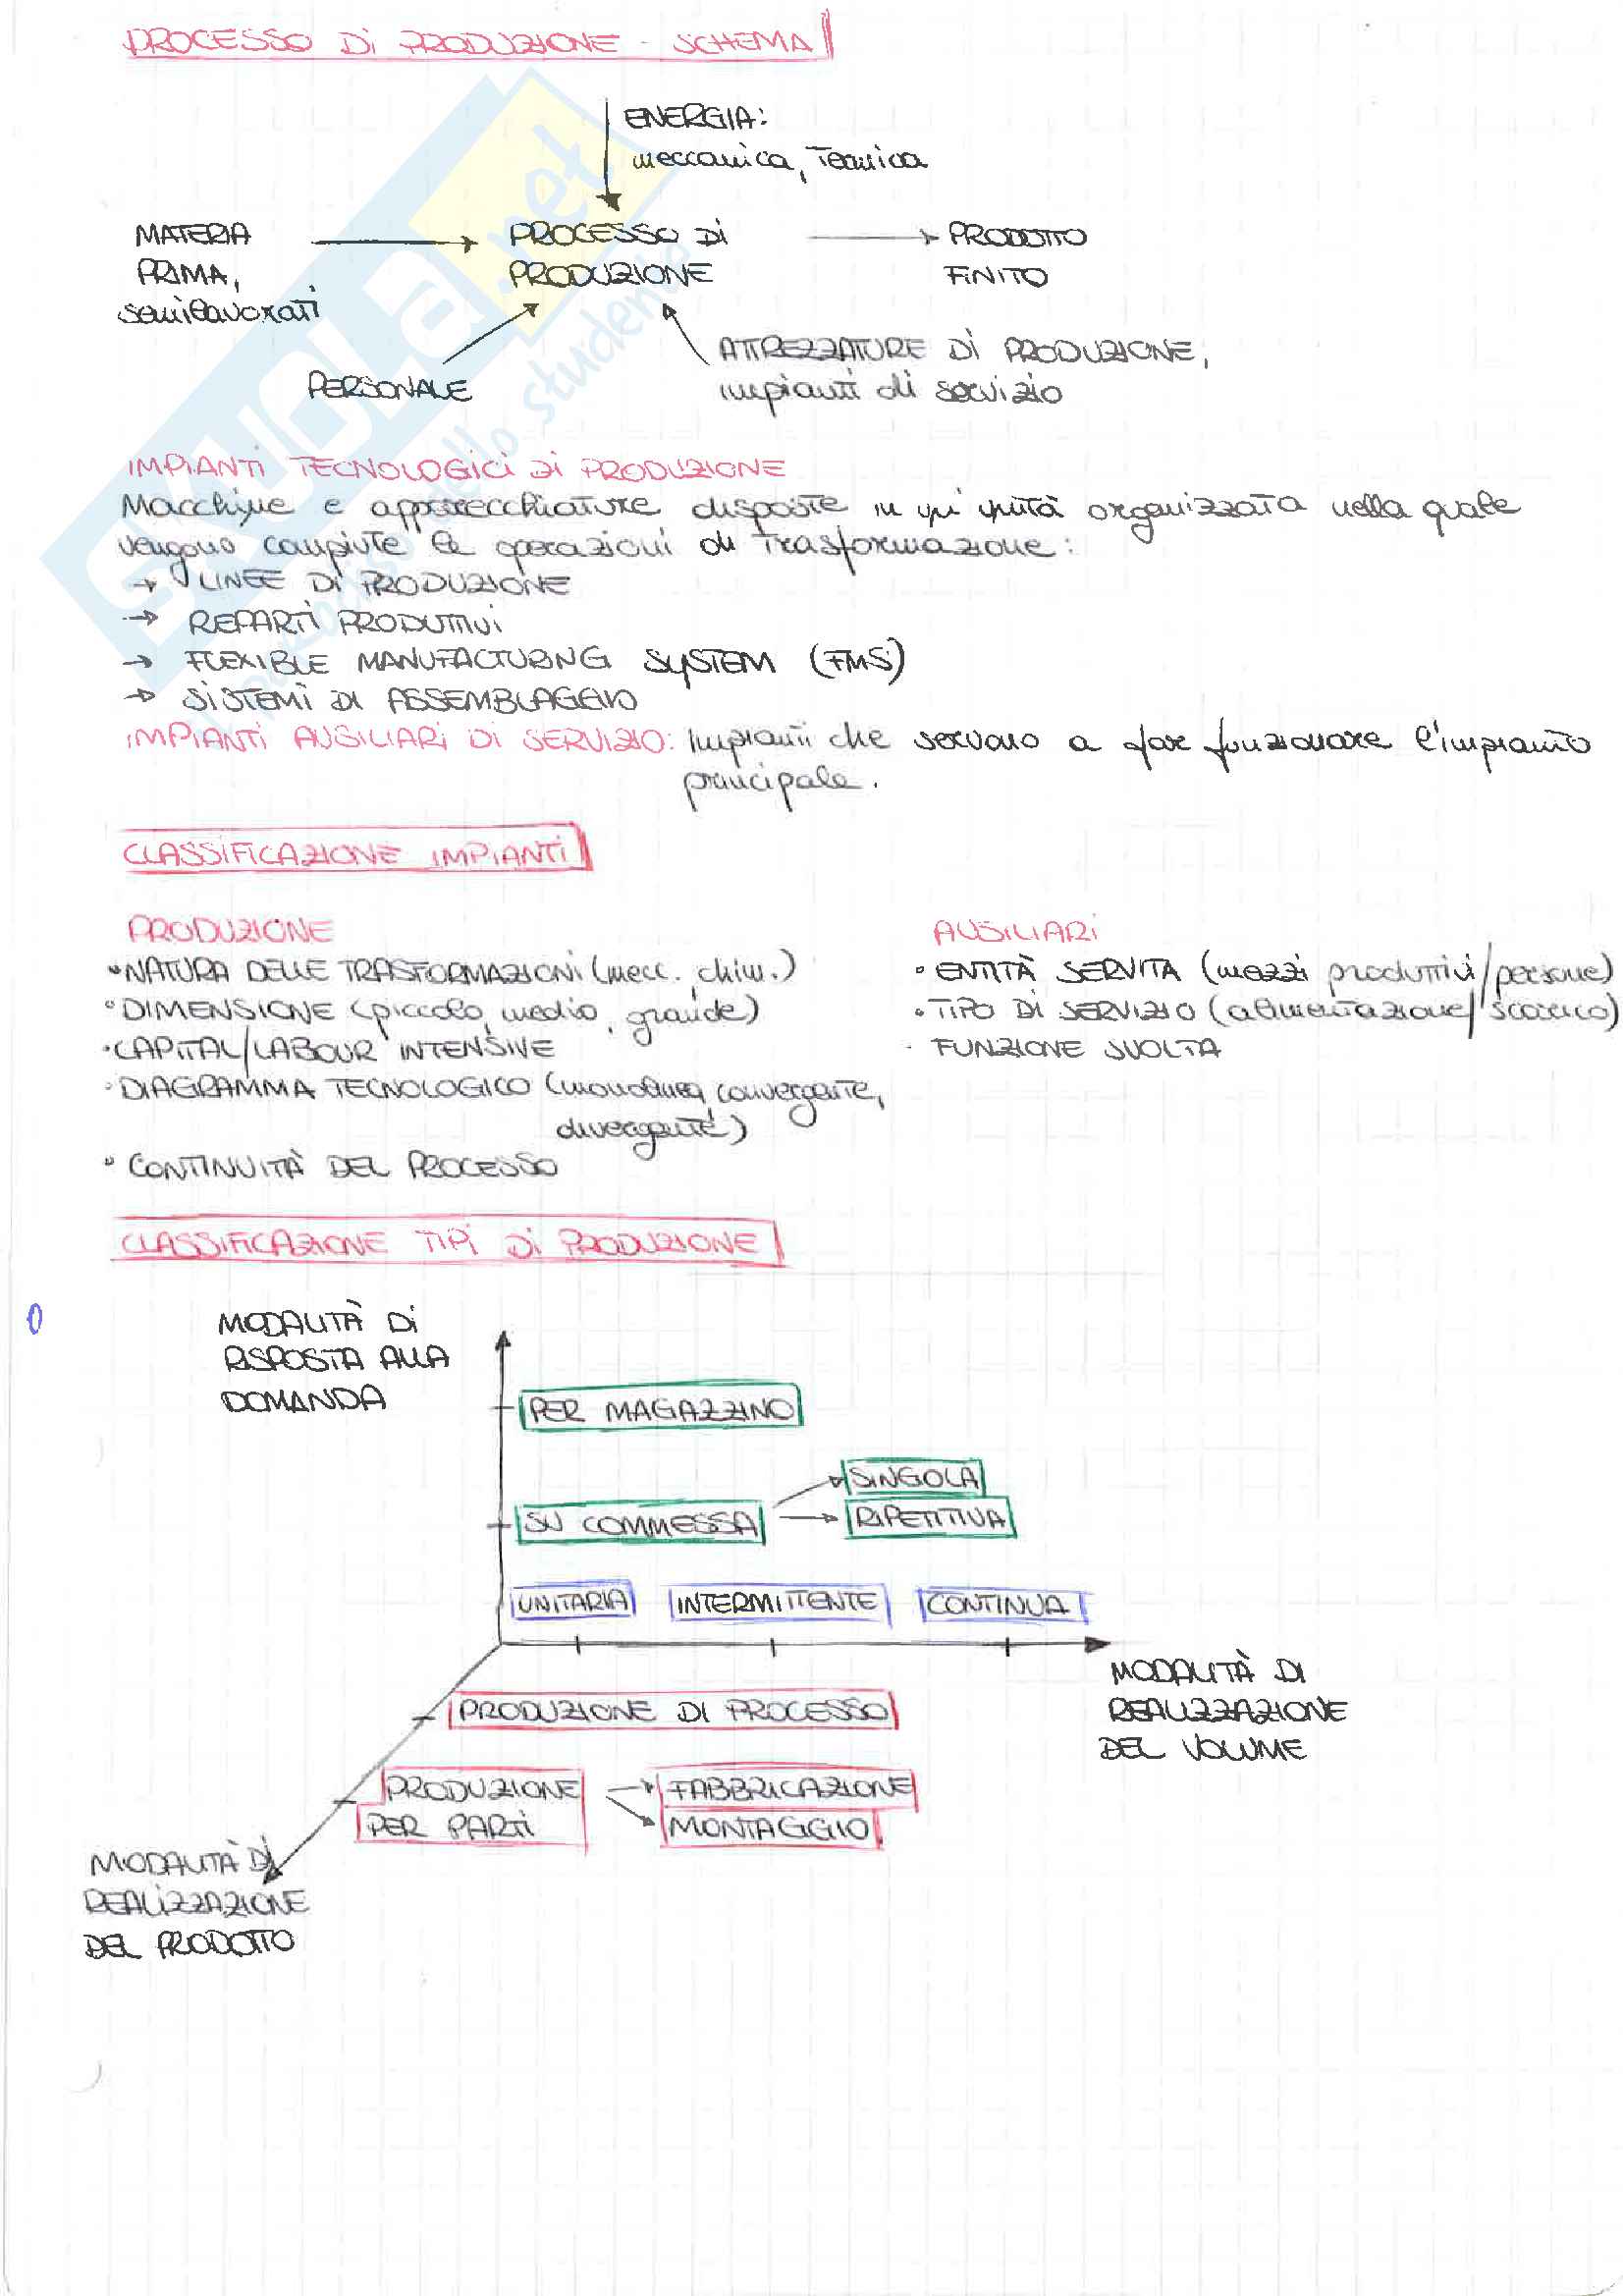 PROCESSO Di PRODUZIONE - SCHEMA
ENERGIA:
meccanica, termica
MATERIA
PRIMA,
semilavorati
PROCESSO Di
PRODUZIONE
PRODOTTO
FiNITO
PERSONALE
ATTREZZATURE Di PRODUZIONE,
impianti di servizio
IMPIANTI TECNOLOGICI DI PRODUZIONE
Macchine e apparecchiature disposte in un' unità organizzata nella quale
vengono compiute le operazioni di trasformazione:
→ LINEE DI PRODUZIONE
→ REPARTI PRODUTTIVI
→ FLEXIBLE MANUFACTURING SYSTEM (FMS)
→ SISTEMI DI ASSEMBLAGGIO
IMPIANTI AUSILIARI DI SERVIZIO: Impianti che servono a far funzionare l'impianto
principale.
CLASSIFICAZIONE IMPIANTI
PRODUZIONE
• NATURA DELLE TRASFORMAZIONI (mecc. chim.)
• DIMENSIONE (piccolo, medio, grande)
• CAPITAL/LABOUR INTENSIVE
• DIAGRAMMA TECNOLOGICO (monolinea, convergente,
divergente)
• CONTINUITÀ DEL PROCESSO
AUSILIARI
• ENTITÀ SERVITA (mezzi produttivi/persone)
• TIPO DI SERVIZIO (alimentazione/scarico)
• FUNZIONE SVOLTA
CLASSIFICAZIONE TIPI DI PRODUZIONE
MODALITÀ Di
RISPOSTA ALLA
DOMANDA
PER MAGAZZINO
SU COMMESSA
SINGOLA
RIPETITIVA
UNITARIA
INTERMITTENTE
CONTINUA
MODALITÀ DI
REALIZZAZIONE
DEL VOLUME
PRODUZIONE DI PROCESSO
PRODUZIONE
PER PARTI
FABBRICAZIONE
MONTAGGIO
MODALITÀ DI
REALIZZAZIONE
DEL PRODOTTO
SKUOLA.net